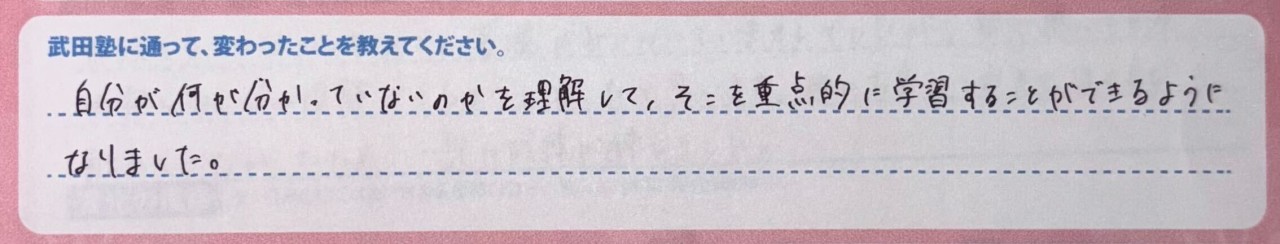 武田塾に通って、変わったことを教えてください。
自分が何が分かっていないのかを理解して、そこを重点的に学習することができるように
なりました。